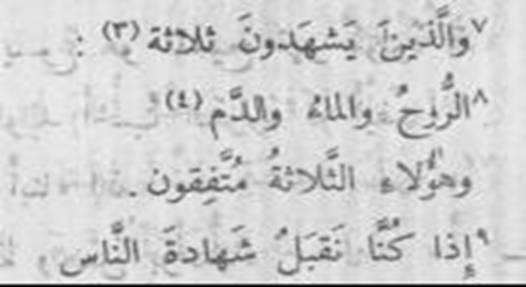 ٧ وَالَّذينَ يَشهَدونَ ثلاثة (٣) :
٨ الرُّوحُ والماءُ والدَّم (٤)
وهؤُلاءِ الثَّلاثةُ مُتَّفِقون .
٩ إِذا كُنَّا نَقبَلُ شَهادةَ النَّاس